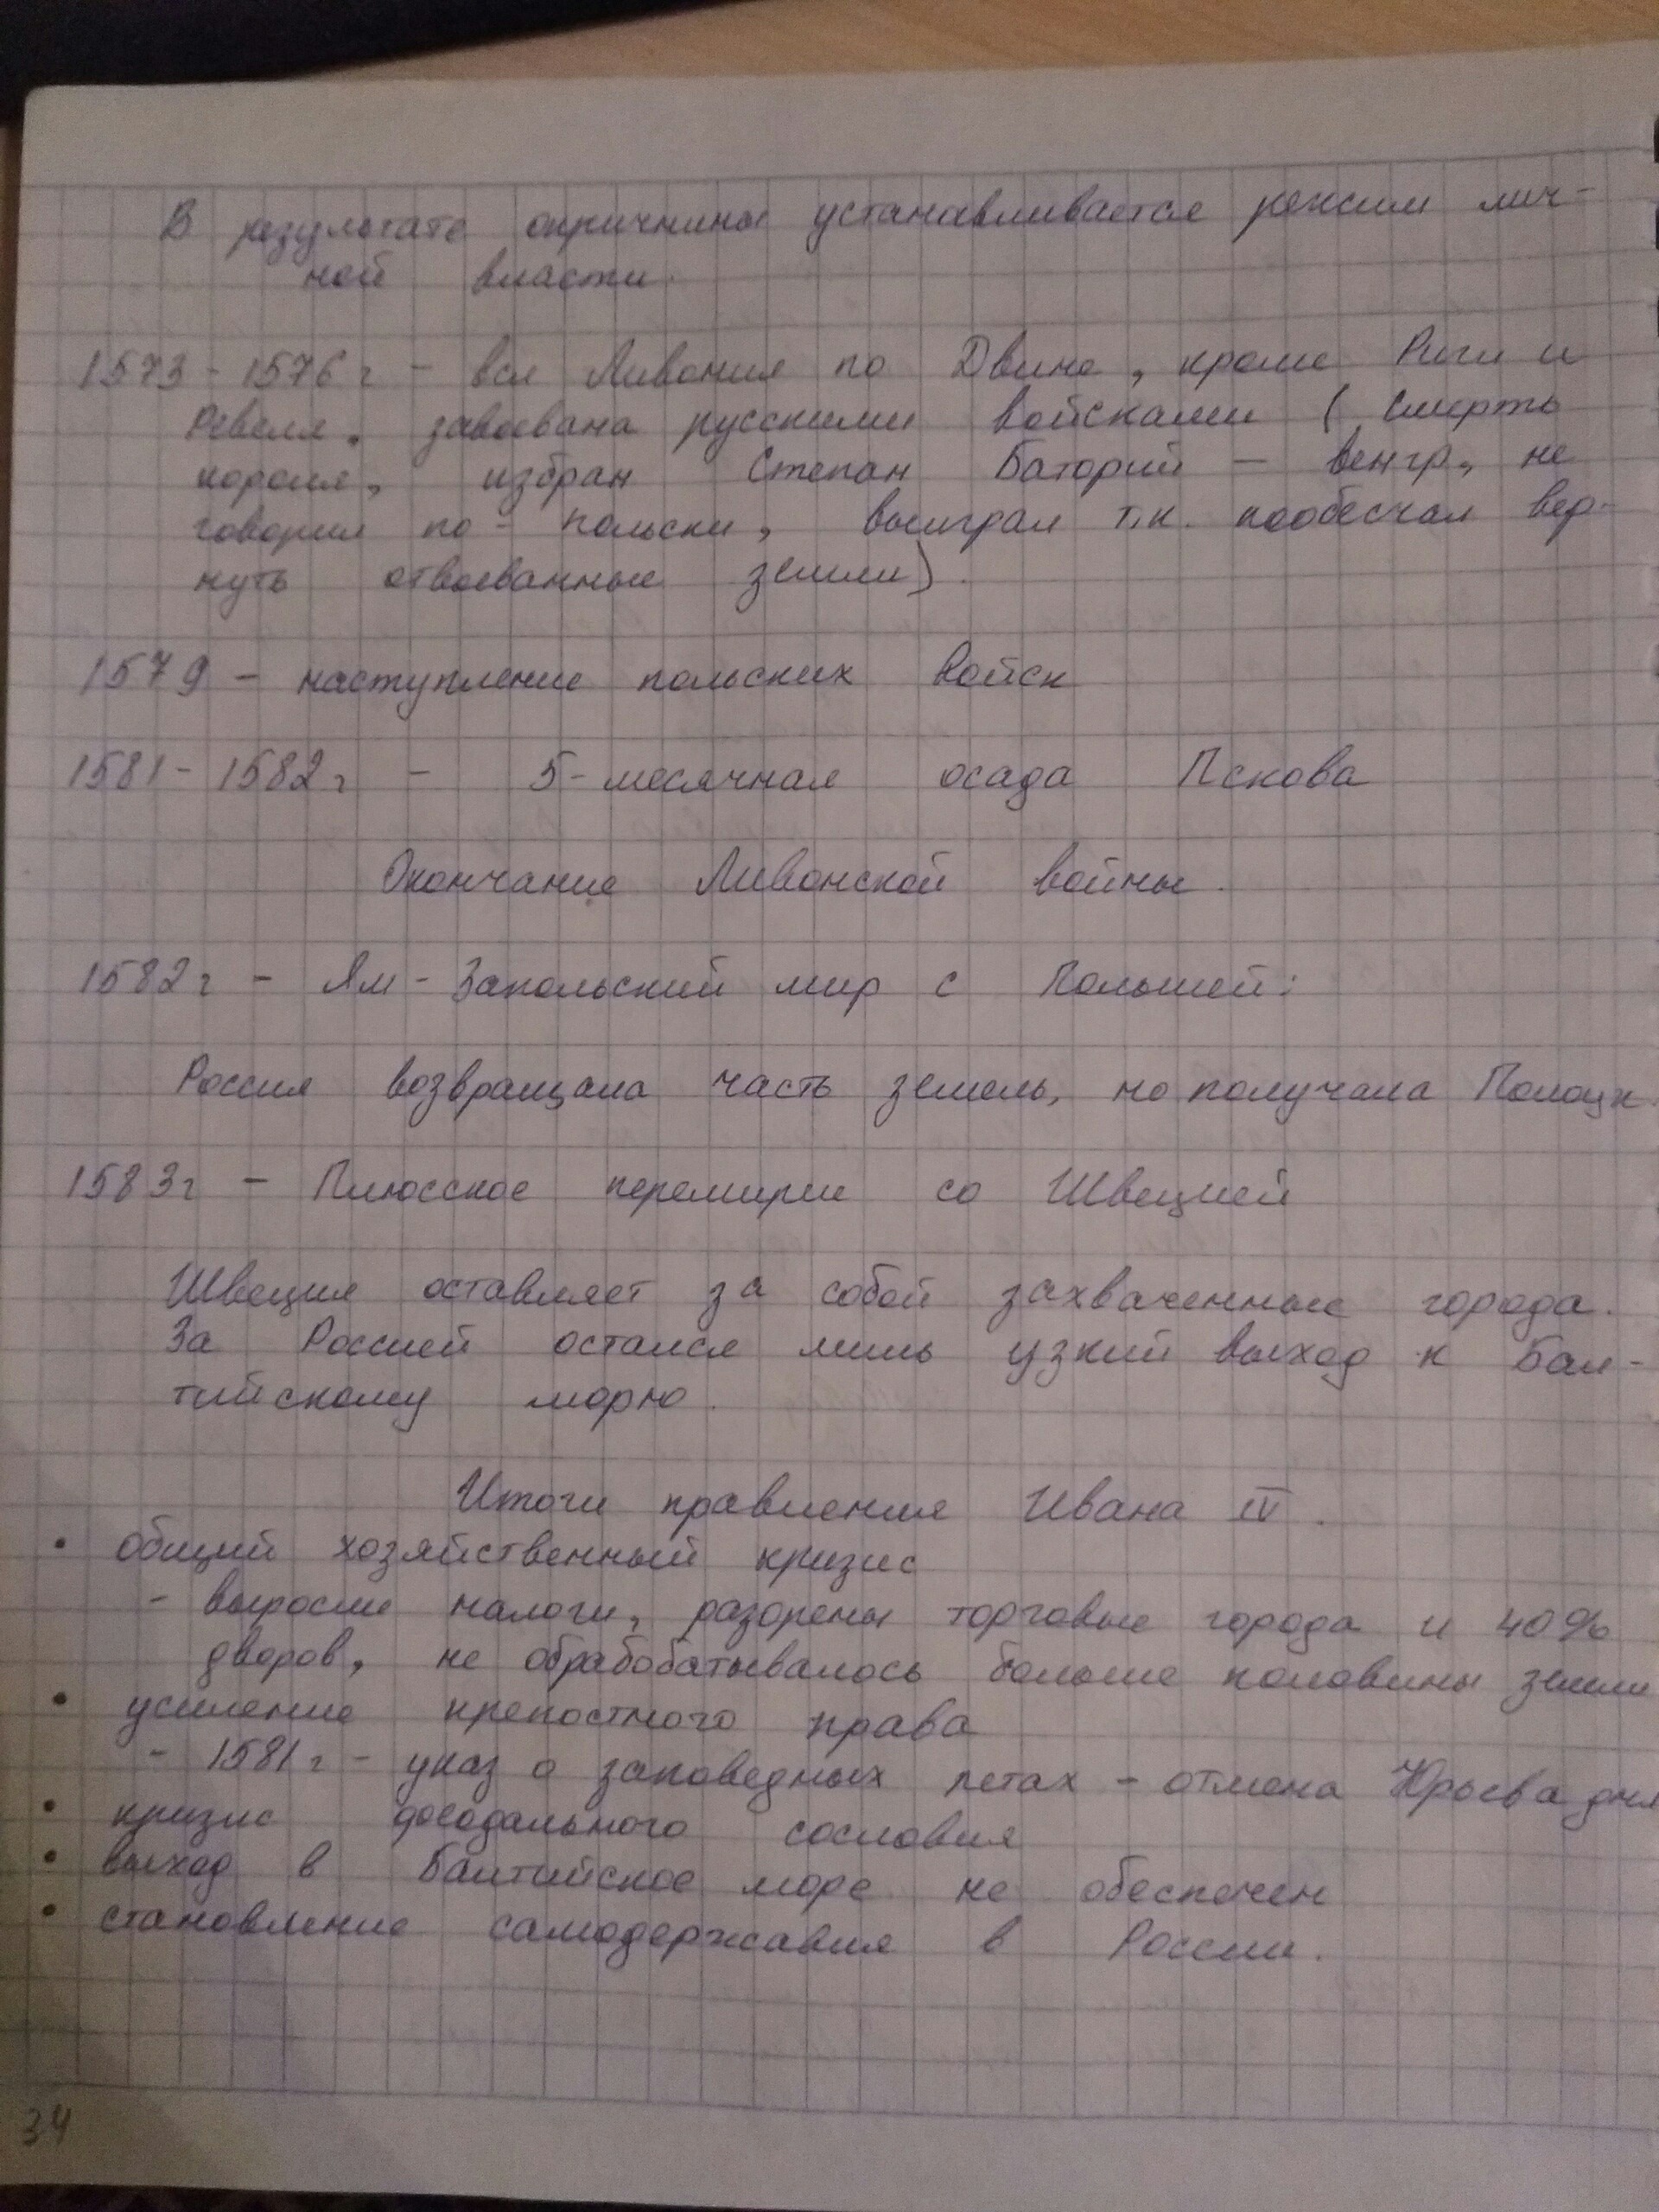 В результате опричнины устанавливается режим лич-
ной власти.
1573 - 1576 г - вся Ливония по Двине, кроме Риги и
Ревеля, завоевана русскими войсками (смерть
короля, избран Степан Баторий - венгр, не
говорил по - польски, выиграл т.к. пообещал вер-
нуть отвоеванные земли).
1579 - наступление польских войск
1581 - 1582 г - 5-месячная осада Пскова
Окончание Ливонской войны.
1582 г - Ям - Запольский мир с Польшей:
Россия возвращала часть земель, но получала Полоцк.
1583 г - Плюсское перемирие со Швецией
Швеция оставляет за собой захваченные города.
За Россией остался лишь узкий выход к Бал-
тийскому морю.
Итоги правления Ивана IV.
• общий хозяйственный кризис
- выросли налоги, разорены торговые города и 40%
дворов, не обрабобатывалось больше половины земли
• усиление крепостного права
- 1581 г - указ о заповедных летах - отмена Юрьева дня
• кризис феодального сословия
• выход в Балтийское море не обеспечен
• становление самодержавия в России.
34